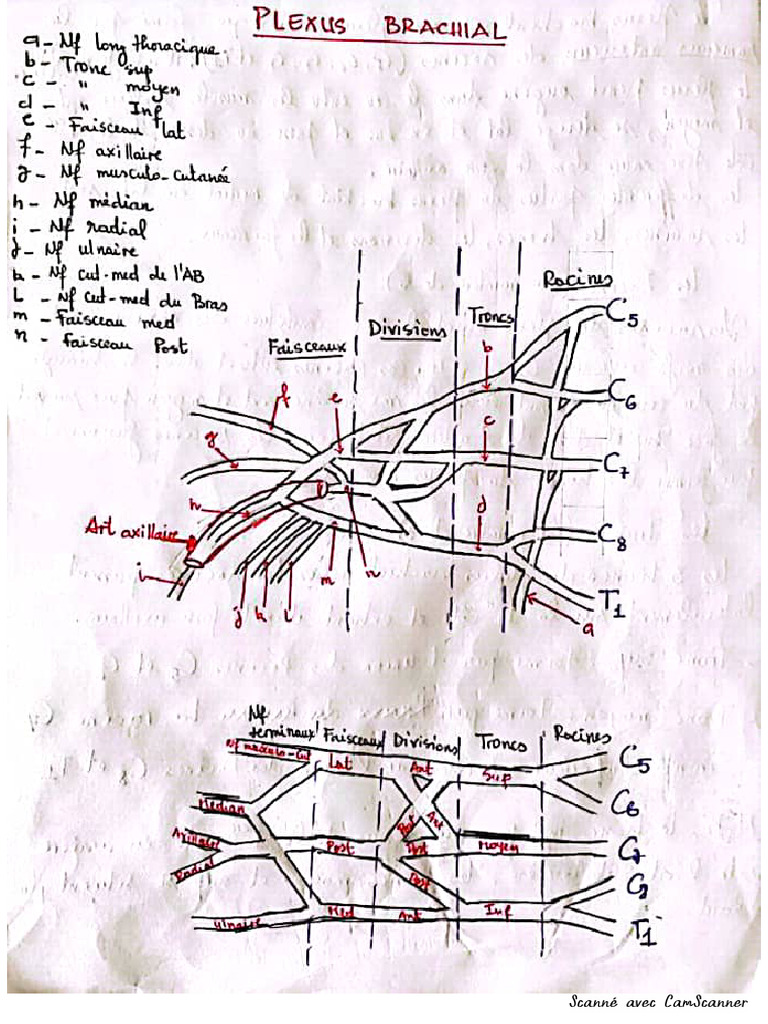 PLEXUS BRACHIAL
a - Nf long thoracique
b - Tronc sup
c - " moyen
d - " Inf
e - Faisceau lat
f - Nf axillaire
g - Nf musculo-cutané
h - Nf médian
i - Nf radial
j - Nf ulnaire
k - Nf cut-med de l'AB
L - Nf cut-med du Bras
m - Faisceau med
n - Faisceau Post
Faisceaux Divisions Troncs Racines
C5
b
C6
f e
c
g
C7
h
d
Art axillaire
C8
i
m n
j k l
T1
a
Nf
terminaux Faisceaux Divisions Troncs Racines
Nf musculo-cut Lat Ant Sup C5
Median Ant C6
Post
Axillaire Post Post Moyen C7
Radial Post C8
Ulnaire Med Ant Inf T1
Scanné avec CamScanner